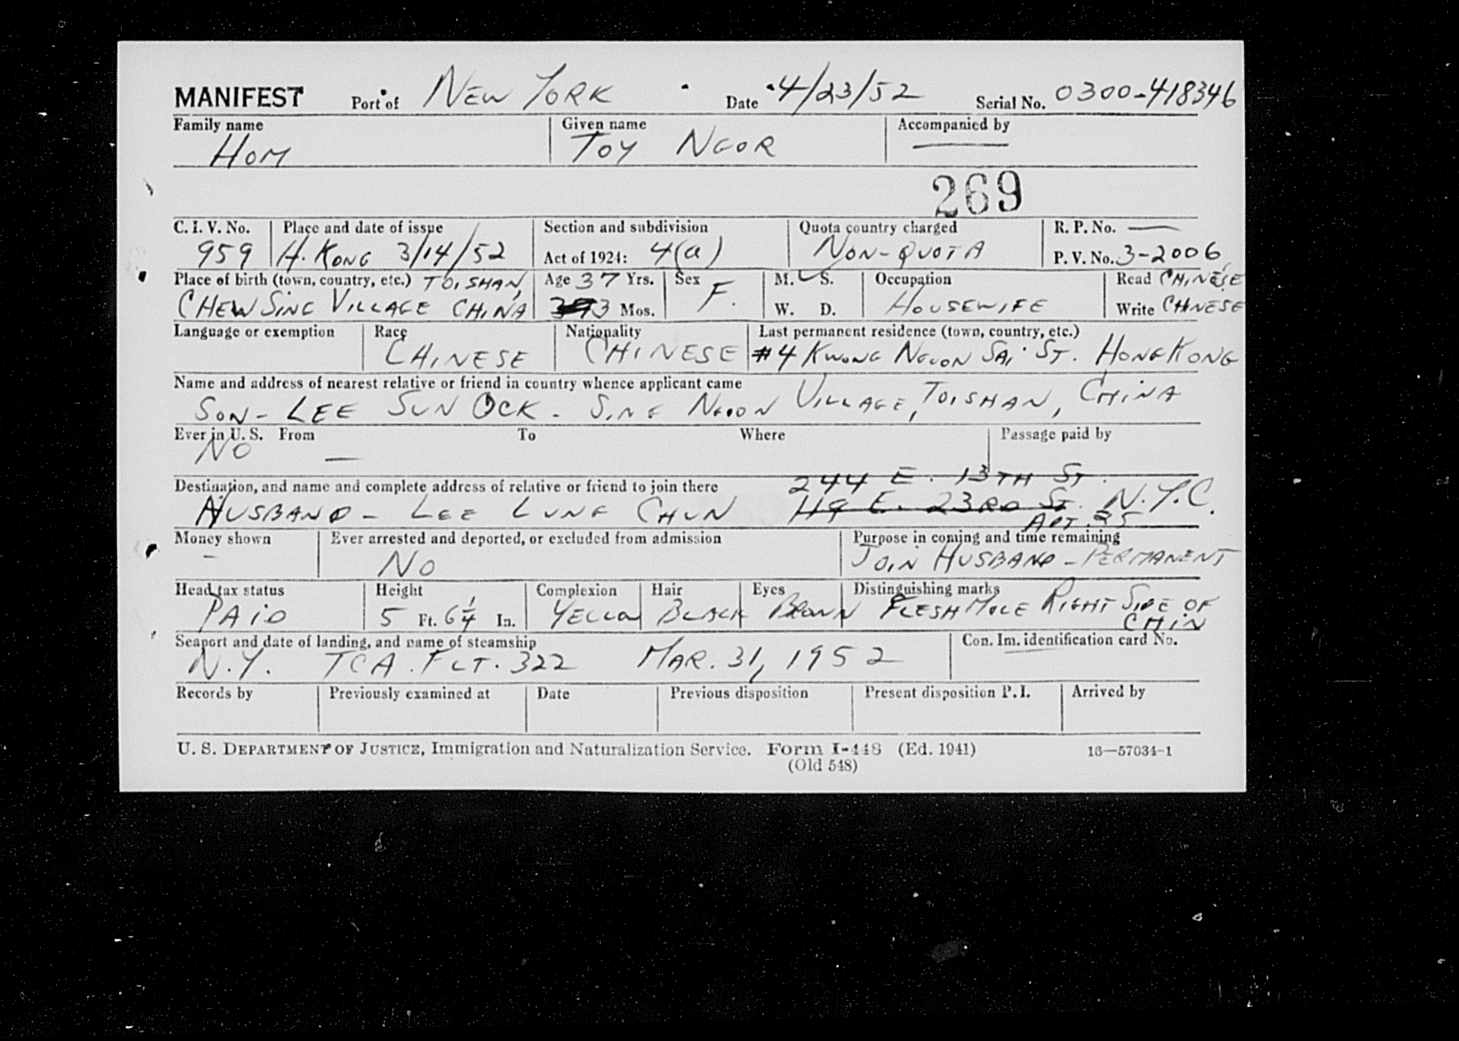 MANIFEST Port of NEW YORK Date 4/23/52 Serial No. 0300-418346
Family name Given name Accompanied by
HOM TOY NGOR —
269
C. I. V. No. Place and date of issue Section and subdivision Quota country charged R. P. No. —
959 H. KONG 3/14/52 Act of 1924: 4(a) NON-QUOTA P. V. No. 3-2006
Place of birth (town, country, etc.) TOISHAN, Age 37 Yrs. Sex M. S. Occupation Read CHINESE
CHEW SING VILLAGE CHINA 3 Mos. F. W. D. HOUSEWIFE Write CHINESE
Language or exemption Race Nationality Last permanent residence (town, country, etc.)
CHINESE CHINESE #4 KWONG NGON SAI ST. HONG KONG
Name and address of nearest relative or friend in country whence applicant came
SON- LEE SUN OCK - SING NGON VILLAGE, TOISHAN, CHINA
Ever in U. S. From To Where Passage paid by
NO —
244 E. 13TH ST.
Destination, and name and complete address of relative or friend to join there
HUSBAND - LEE LUNG CHUN 119 E. 23RD ST. N.Y.C.
APT. 25
Money shown Ever arrested and deported, or excluded from admission Purpose in coming and time remaining
— NO JOIN HUSBAND - PERMANENT
Head tax status Height Complexion Hair Eyes Distinguishing marks
PAID 5 Ft. 6¼ In. YELLOW BLACK BROWN FLESH MOLE RIGHT SIDE OF
CHIN
Seaport and date of landing, and name of steamship Con. Im. identification card No.
N.Y. TCA. FLT. 322 MAR. 31, 1952
Records by Previously examined at Date Previous disposition Present disposition P. I. Arrived by
U. S. DEPARTMENT OF JUSTICE, Immigration and Naturalization Service. Form I-448 (Ed. 1941) 16—57034-1
(Old 548)